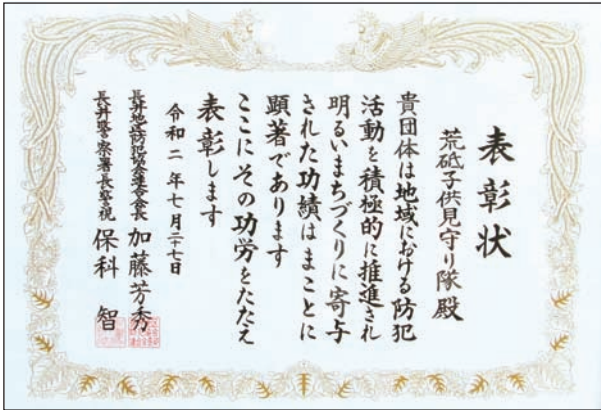 表彰状
荒砥子供見守り隊殿
貴団体は地域における防犯
活動を積極的に推進され
明るいまちづくりに寄与
された功績はまことに
顕著であります
ここにその功労をたたえ
表彰します
令和二年七月二十七日
長井地区防犯協会連合会長 加藤芳秀
長井警察署長警視 保科智